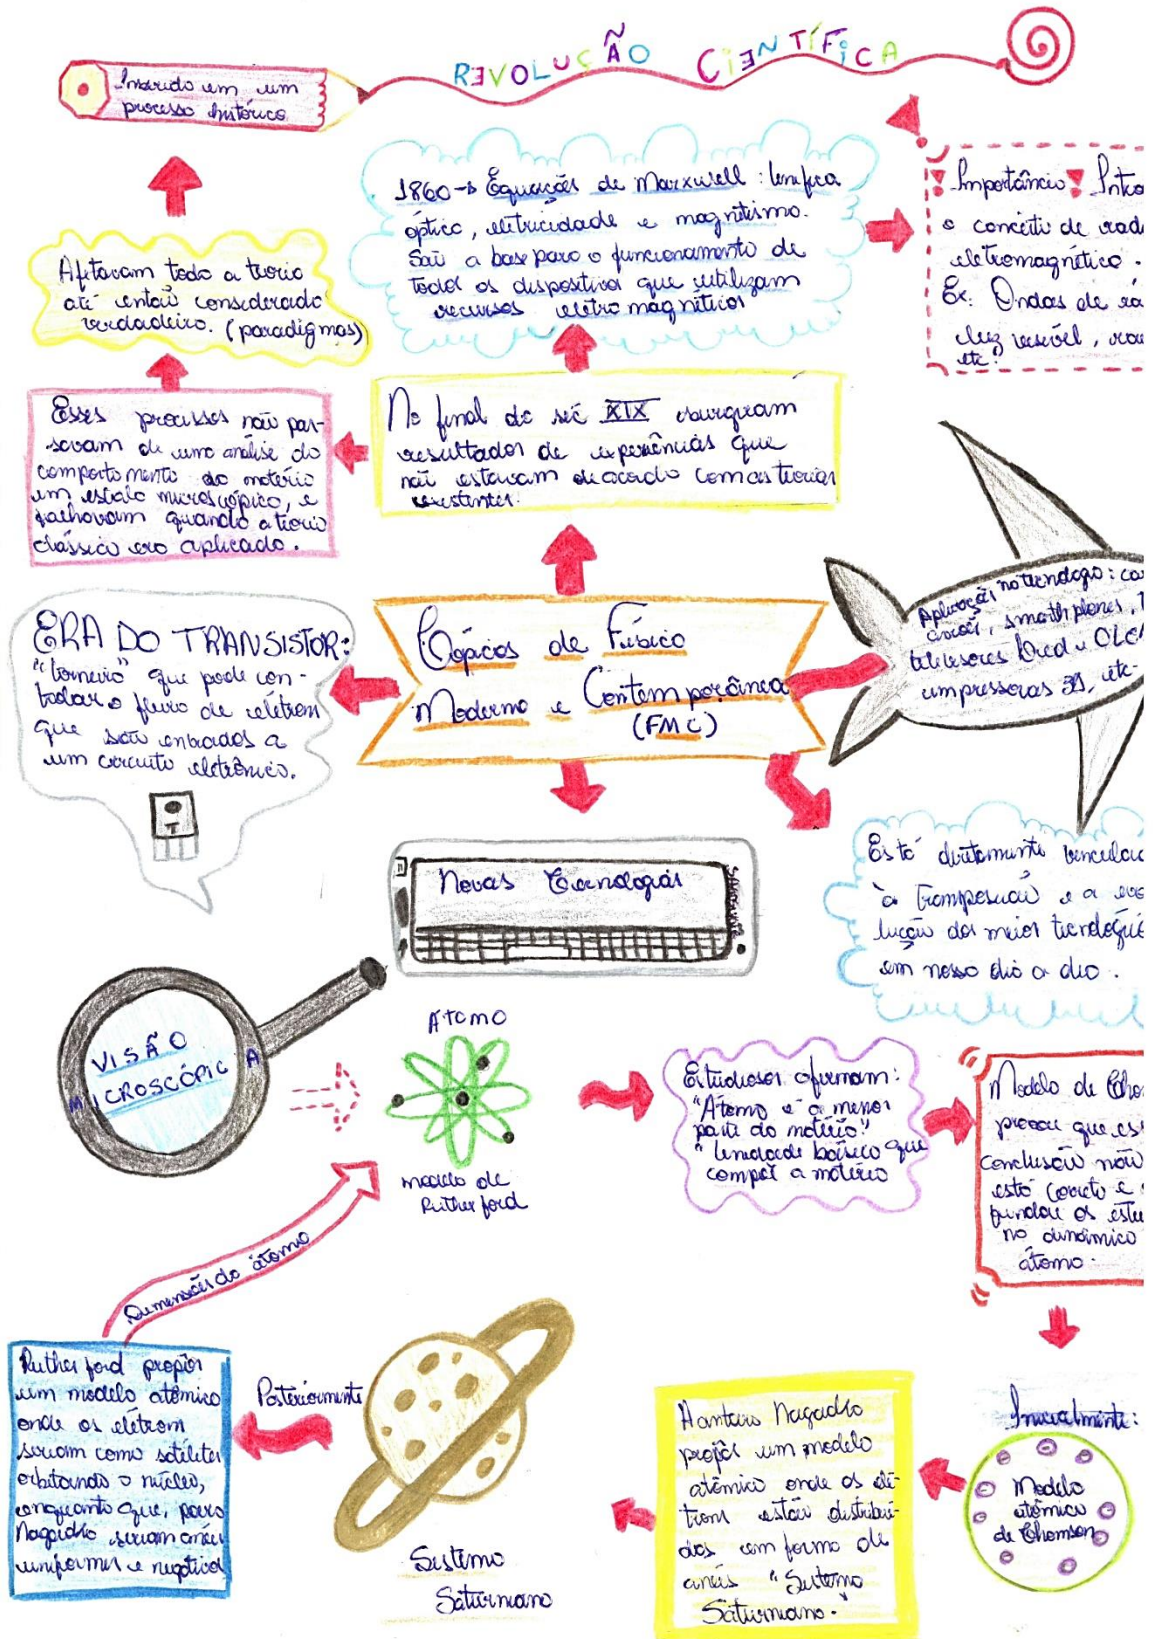 REVOLUÇÃO CIENTÍFICA
Inserido em um
processo histórico
1860 → Equações de Marxwell: Unifica
óptica, eletricidade e magnetismo.
São a base para o funcionamento de
todos os dispositivos que utilizam
recursos eletromagnéticos
Importância Intro
o conceito de rad
eletromagnética.
Ex: Ondas de rá
luz visível,
etc.
Afetavam toda a teoria
até então considerada
verdadeira. (paradigmas)
Esses processos não pas-
savam de uma análise do
comportamento da matéria
em escala microscópica, e
falhavam quando a teoria
clássica era aplicada.
No final do séc XIX surgiram
resultados de experiências que
não estavam de acordo com as teorias
existentes.
ERA DO TRANSISTOR:
"torneira" que pode con-
trolar o fluxo de elétrons
que são enviados a
um circuito eletrônico.
T
Tópicos de Física
Moderna e Contemporânea
(FMC)
Aplicação na tecnologia:
smarth phones,
televisores Lred e OLE
impressoras 3D, etc
Novas Tecnologias
Está diretamente vinculad
à transposição e a evo
lução das meios tecnológic
em nosso dia a dia.
VISÃO
MICROSCÓPICA
ÁTOMO
modelo de
Rutherford
Estudiosos afirmam:
"Átomo é a menor
parte da matéria"
"Unidade básica que
compõe a matéria
Modelo de Tho
provou que es
conclusão não
está correta e
fundou os estu
na dinâmica
átomo.
Dimensões do átomo
Rutherford propôs
um modelo atômico
onde os elétrons
seriam como satélites
orbitando o núcleo,
enquanto que, para
Nagaoka seriam anéis
uniformes e negativos
Posteriormente
Sistema
Saturniano
Hantaro Nagaoka
propôs um modelo
atômico onde os elé-
trons estão distribuí-
dos em forma de
anéis "Sistema
Saturniano.
Inicialmente:
Modelo
atômico
de Thomson